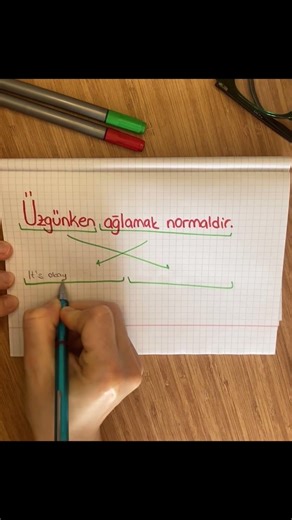 Üzgünken ağlamak normaldir.
It's okay